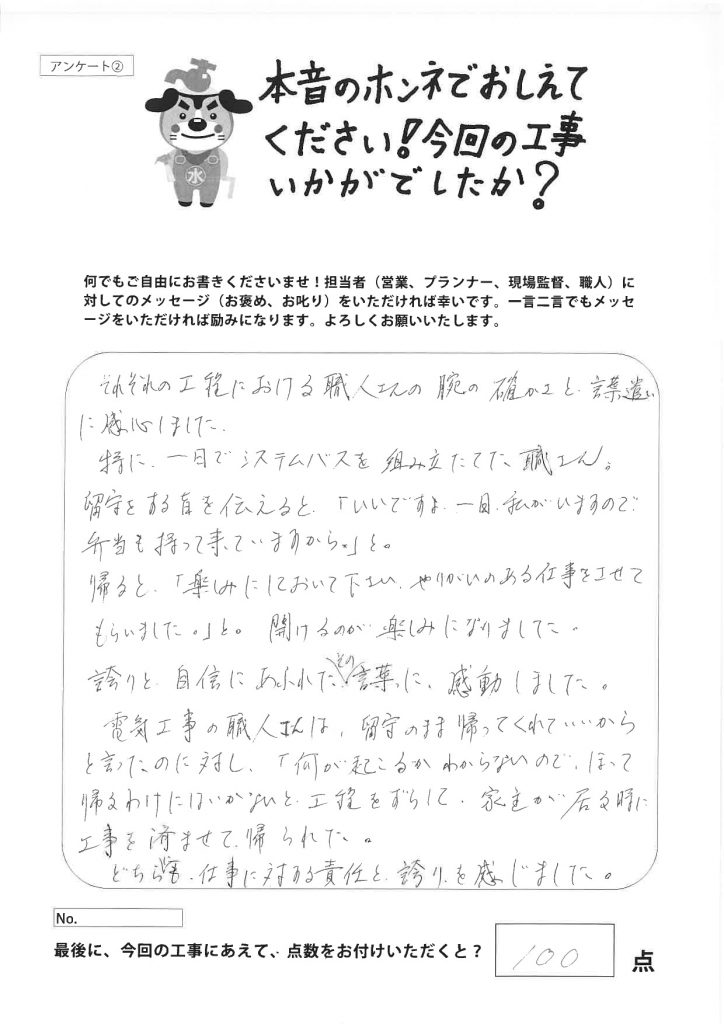 アンケート②
本音のホンネでおしえて
ください!今回の工事
いかがでしたか?
水
何でもご自由にお書きくださいませ!担当者(営業、プランナー、現場監督、職人)に
対してのメッセージ(お褒め、お叱り)をいただければ幸いです。一言二言でもメッセ
ージをいただければ励みになります。よろしくお願いいたします。
それぞれの工程における職人さんの腕の確かさと、言葉遣い
に感心しました。
特に、一日でシステムバスを組み立てた、職工さん。
留守をする旨を伝えると、「いいですよ、一日、私がいますので、
弁当も持って来ていますから。」と。
帰ると、「楽しみにしておいて下さい、やりがいのある仕事をさせて
もらいました。」と。開けるのが楽しみになりました。
誇りと自信にあふれたその言葉に、感動しました。
電気工事の職人さんは、留守のまま帰ってくれていいから
と言ったのに対し、「何が起こるかわからないので、ほって
帰るわけにはいかないと、工程をずらして、家主が居る時に
工事を済ませて、帰られた。
どちらも、仕事に対する責任と、誇りを感じました。
No.
最後に、今回の工事にあえて、点数をお付けいただくと? 100 点